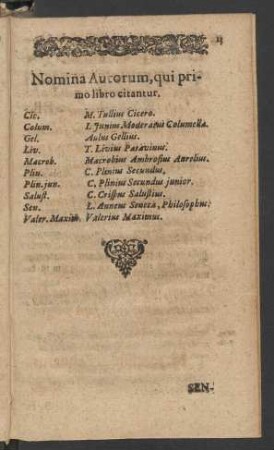 Nomina Autorum, qui pri-
mo libro citantur.
Cic. M. Tullius Cicero.
Colum. I. Junius Moderatus Columella.
Gel. Aulus Gellius.
Liv. T. Livius Patavinus.
Macrob. Macrobius Ambrosius Aurelius.
Plin. C. Plinius Secundus.
Plin. jun. C. Plinius Secundus junior.
Salust. C. Crispus Salustius.
Sen. L. Anneus Seneca, Philosophus.
Valer. Maxim. Valerius Maximus.
SEN-